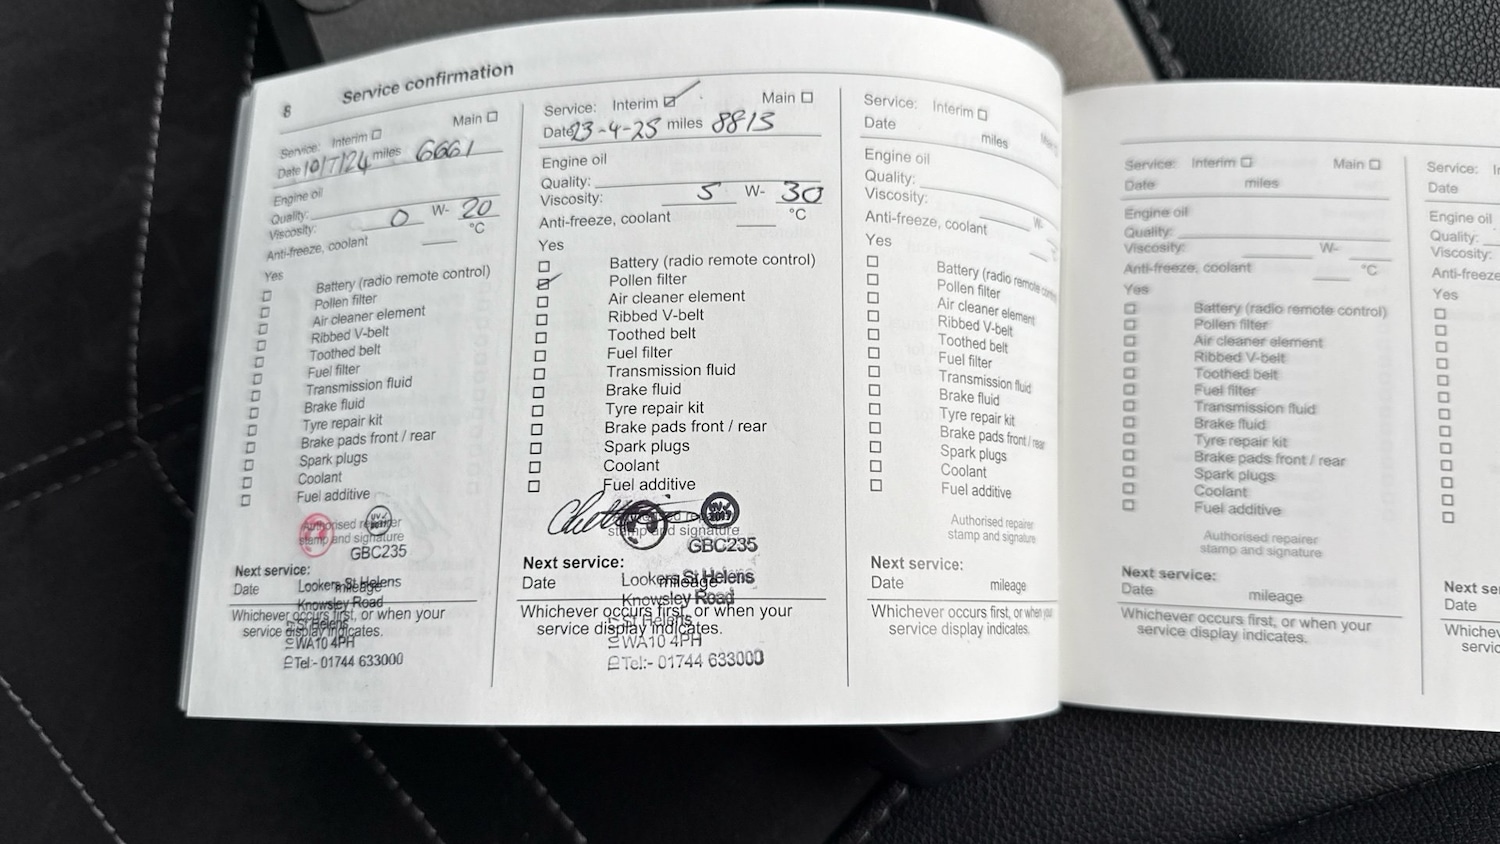 8 Service confirmation
Service: Interim Main
Date 10/7/24 miles 6661
Engine oil
Quality:
Viscosity: 0 W- 20
Anti-freeze, coolant °C
Yes
Battery (radio remote control)
Pollen filter
Air cleaner element
Ribbed V-belt
Toothed belt
Fuel filter
Transmission fluid
Brake fluid
Tyre repair kit
Brake pads front / rear
Spark plugs
Coolant
Fuel additive
Authorised repairer
stamp and signature
GBC235
Next service:
Date mileage
Lookers St Helens
Knowsley Road
Whichever occurs first, or when your
St Helens
service display indicates.
WA10 4PH
Tel:- 01744 633000
Service: Interim Main
Date 23-4-25 miles 8813
Engine oil
Quality:
Viscosity: 5 W- 30
Anti-freeze, coolant °C
Yes
Battery (radio remote control)
Pollen filter
Air cleaner element
Ribbed V-belt
Toothed belt
Fuel filter
Transmission fluid
Brake fluid
Tyre repair kit
Brake pads front / rear
Spark plugs
Coolant
Fuel additive
stamp and signature
GBC235
Next service:
Date mileage
Lookers St Helens
Knowsley Road
Whichever occurs first, or when your
St Helens
service display indicates.
WA10 4PH
Tel:- 01744 633000
Service: Interim
Date miles
Engine oil
Quality:
Viscosity: W-
Anti-freeze, coolant °C
Yes
Battery (radio remote
Pollen filter
Air cleaner element
Ribbed V-belt
Toothed belt
Fuel filter
Transmission fluid
Brake fluid
Tyre repair kit
Brake pads front / rear
Spark plugs
Coolant
Fuel additive
Authorised repairer
stamp and signature
Next service:
Date mileage
Whichever occurs first, or when your
service display indicates.
Service: Interim Main
Date miles
Engine oil
Quality:
Viscosity: W-
Anti-freeze, coolant °C
Yes
Battery (radio remote control)
Pollen filter
Air cleaner element
Ribbed V-belt
Toothed belt
Fuel filter
Transmission fluid
Brake fluid
Tyre repair kit
Brake pads front / rear
Spark plugs
Coolant
Fuel additive
Authorised repairer
stamp and signature
Next service:
Date mileage
Whichever occurs first, or when your
service display indicates.
Service:
Date
Engine oil
Quality:
Viscosity:
Anti-freeze
Yes
Next se
Date
Whichev
servic